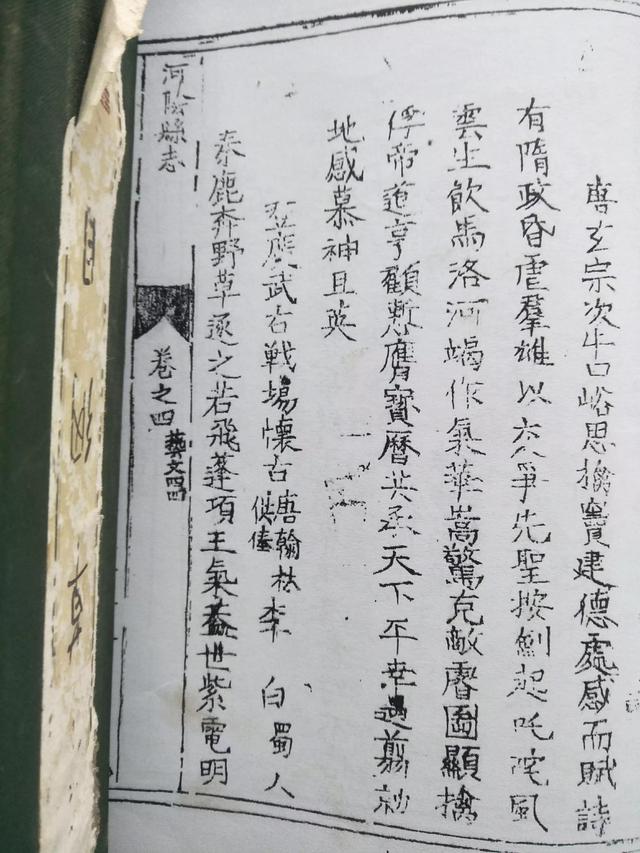 唐玄宗次牛口峪思擒竇建德處感而賦詩
有隋政昏虐羣雄以交爭先聖按劍起叱咤風
雲生飲馬洛河竭作氣華嵩驚克敵睿圖顯擒
俘帝道亨顧慙膺寶曆共承天下平幸過翦
地感慕神且英
登廣武古戰塲懷古唐翰林供俸李白蜀人
秦鹿奔野草逐之若飛蓬項王氣蓋世紫電明
河陰縣志
卷之四
藝文四